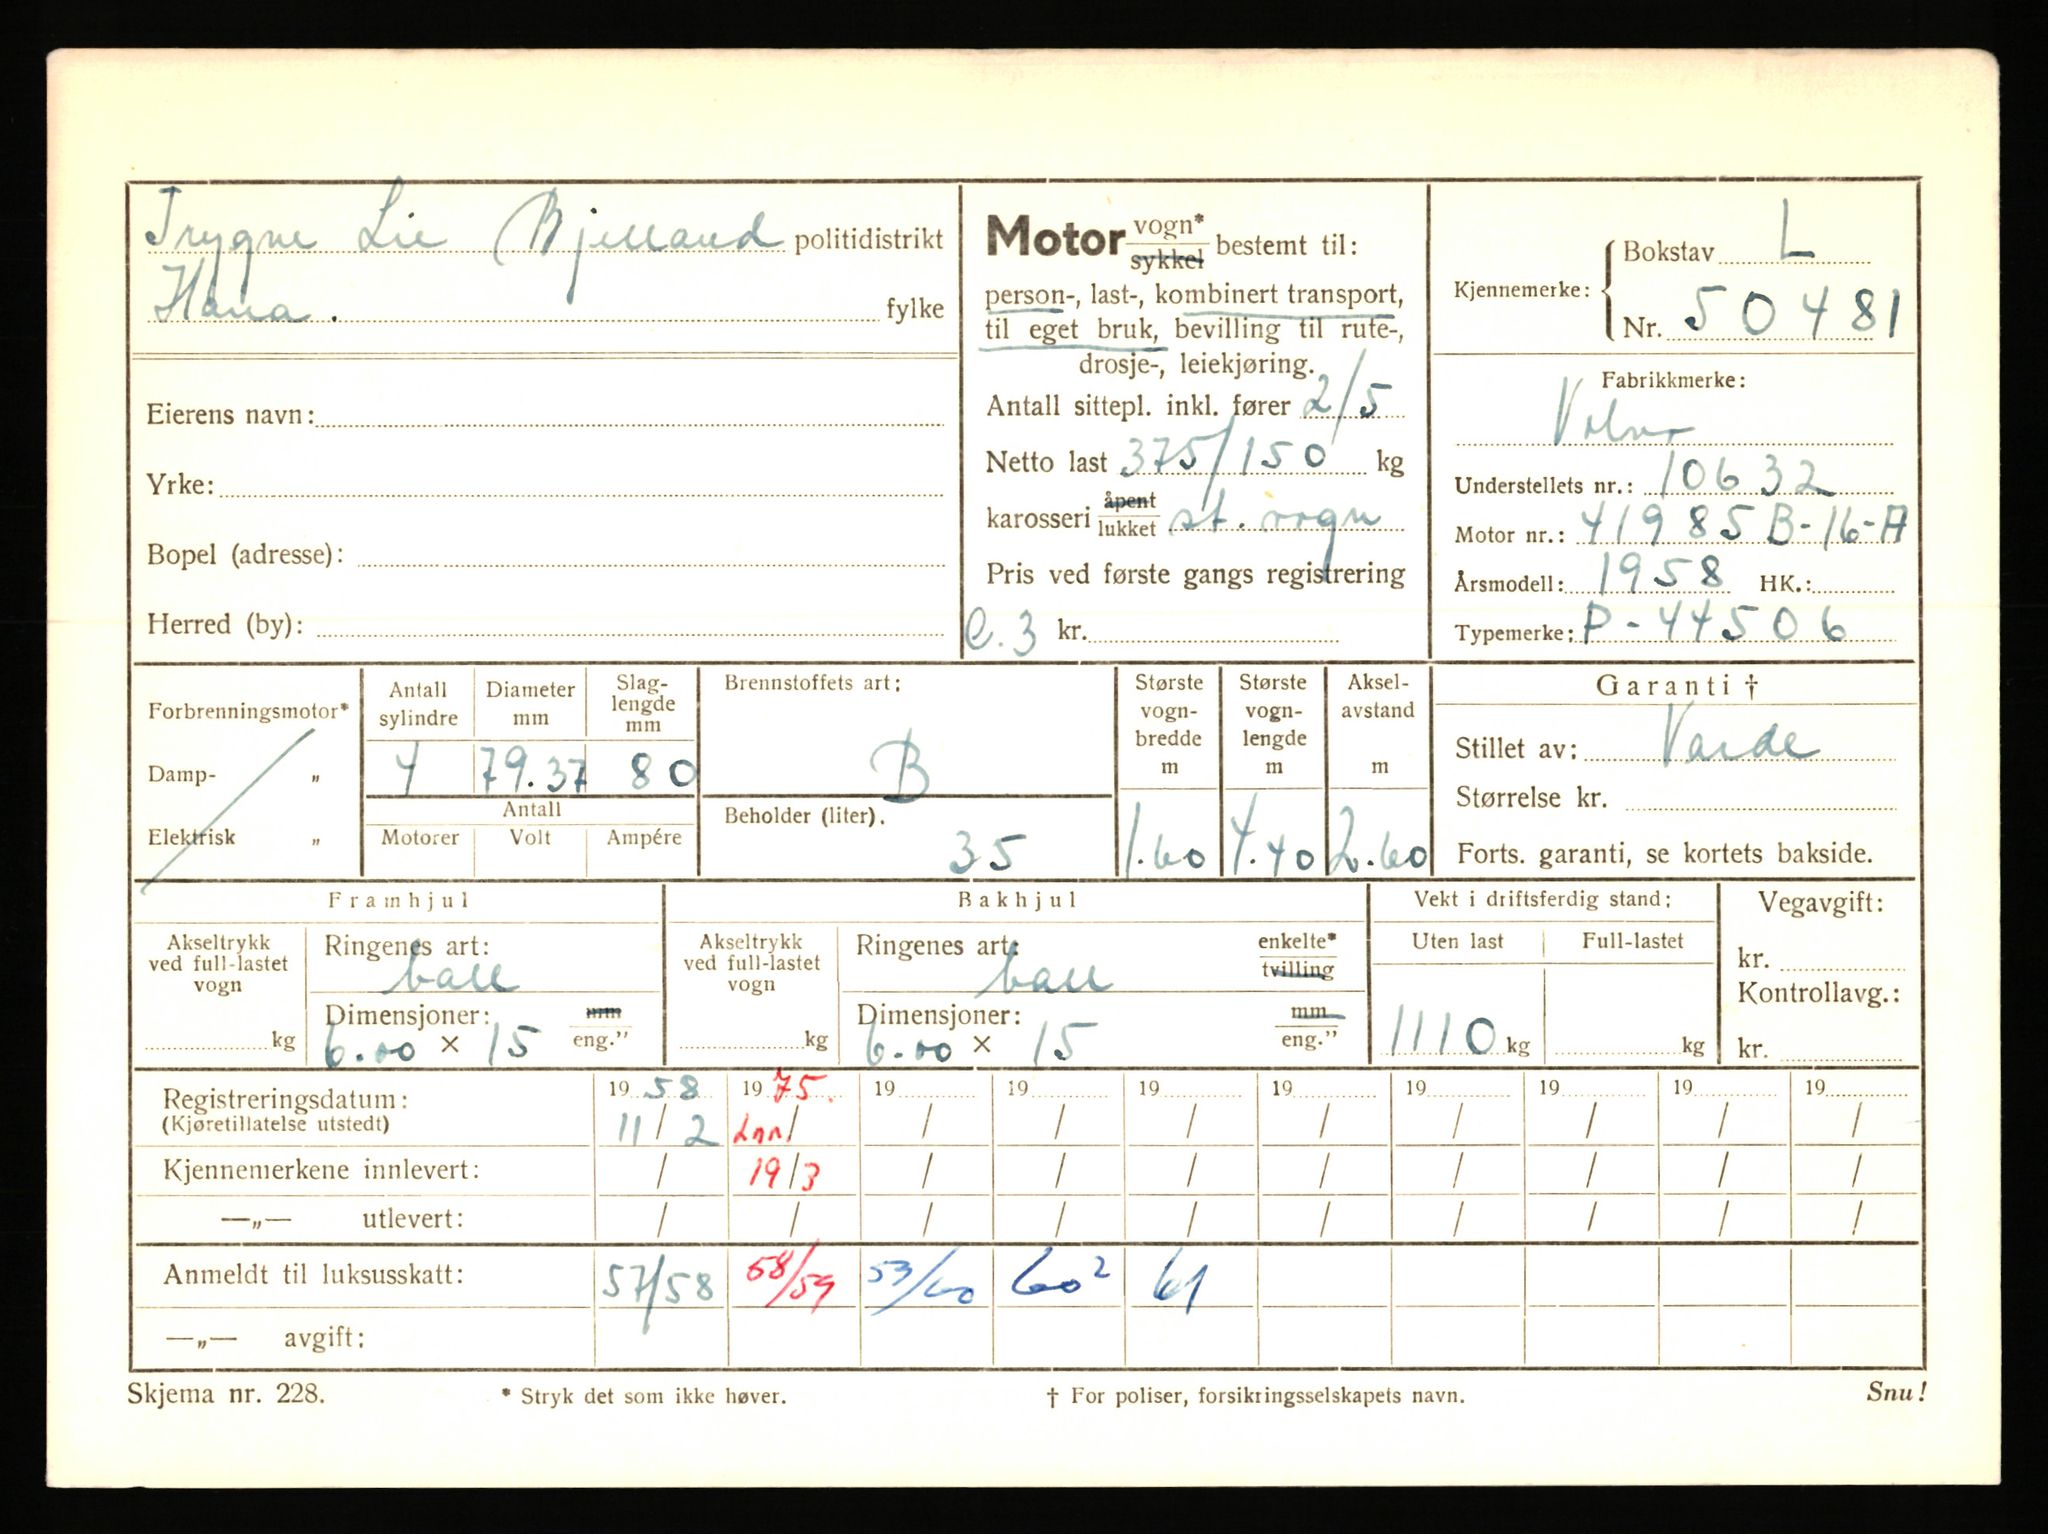 Trygve Lie Bjelland politidistrikt
Hana. fylke
Eierens navn:
Yrke:
Bopel (adresse):
Herred (by):
Motor vogn* sykkel bestemt til:
person-, last-, kombinert transport,
til eget bruk, bevilling til rute-,
drosje-, leiekjøring.
Antall sittepl. inkl. fører 2/5
Netto last 375/150 kg
karosseri åpent lukket st. vogn
Pris ved første gangs registrering
C.3 kr.
Kjennemerke: Bokstav L
Nr. 50481
Fabrikkmerke:
Volvo
Understellets nr.: 10632
Motor nr.: 41985 B-16-A
Årsmodell: 1958 HK.:
Typemerke: P-44506
Forbrenningsmotor*
Damp- „
Elektrisk „
Antall sylindre
4
Diameter mm
79.37
Slag-lengde mm
80
Antall
Motorer Volt Ampére
Brennstoffets art:
B
Beholder (liter).
35
Største vogn-bredde m
1.60
Største vogn-lengde m
4.40
Aksel-avstand m
2.60
Garanti †
Stillet av: Varde
Størrelse kr.
Forts. garanti, se kortets bakside.
Framhjul
Akseltrykk ved full-lastet vogn
kg
Ringenes art:
ball
Dimensjoner: mm
6.00 × 15 eng.”
Bakhjul
Akseltrykk ved full-lastet vogn
kg
Ringenes art: enkelte*
ball tvilling
Dimensjoner: mm
6.00 × 15 eng.”
Vekt i driftsferdig stand:
Uten last Full-lastet
1110 kg kg
Vegavgift:
kr.
Kontrollavg.:
kr.
Registreringsdatum: 19 58 19 75. 19 19 19 19 19 19 19 19
(Kjøretillatelse utstedt) 11/2 Inn/ / / / / / / / /
Kjennemerkene innlevert: / 19/3 / / / / / / / /
—„— utlevert: / / / / / / / / / /
Anmeldt til luksusskatt: 57/58 58/59 53/60 60² 61
—„— avgift:
Skjema nr. 228. * Stryk det som ikke høver. † For poliser, forsikringsselskapets navn. Snu!